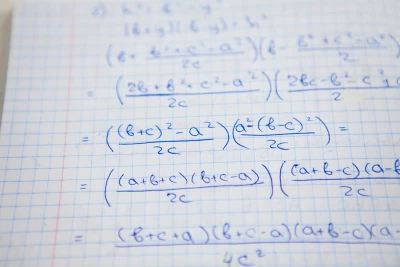 (b+y)(b-y) = h²
(b + (b²+c²-a²)/2c)(b - (b²+c²-a²)/2
= ((2b+b²+c²-a²)/2c)((2bc-b²-c²+
= (((b+c)²-a²)/2c)((a²-(b-c)²)/2c) =
= (((a+b+c)(b+c-a))/2c)(((a+b-c)(a-b/2c
= ((b+c+a)(b+c-a)(a+b-c)(a-/4c²